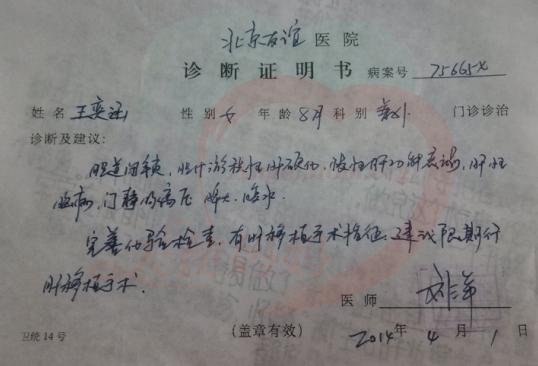 北京友谊医院
诊断证明书 病案号 75665X
姓名 王奕涵 性别 女 年龄 8月 科别 门诊诊治
诊断及建议:
胆道闭锁,胆汁淤积性肝硬化,慢性肝功能衰竭,肝性
脑病,门静脉高压 脾大.腹水.
完善化验检查,有肝移植手术指征.建议限期行
肝移植手术.
医师
(盖章有效) 2014年4月1日
卫统14号